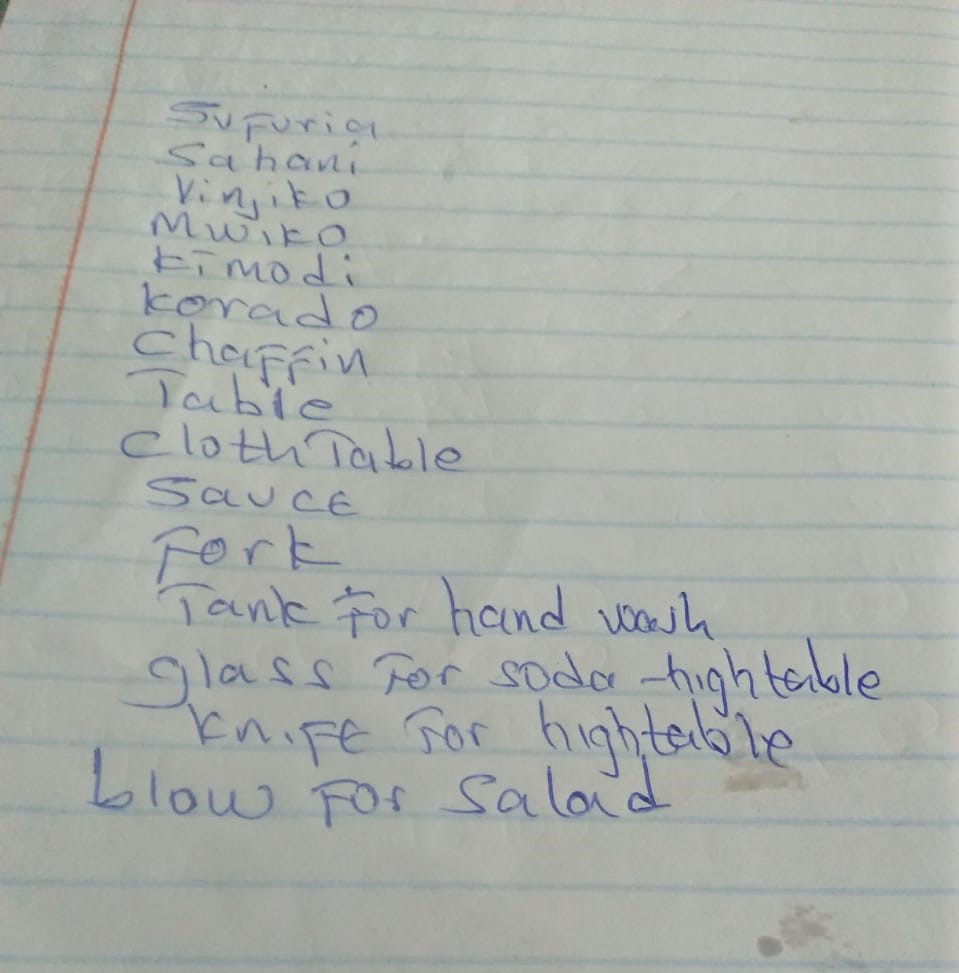 Sufuria
Sahani
Vinjiko
Mwiko
Kimodi
Korado
Chaffin
Table
Cloth Table
Sauce
Fork
Tank for hand wash
glass for soda - hightable
Knife for hightable
blow for Salad